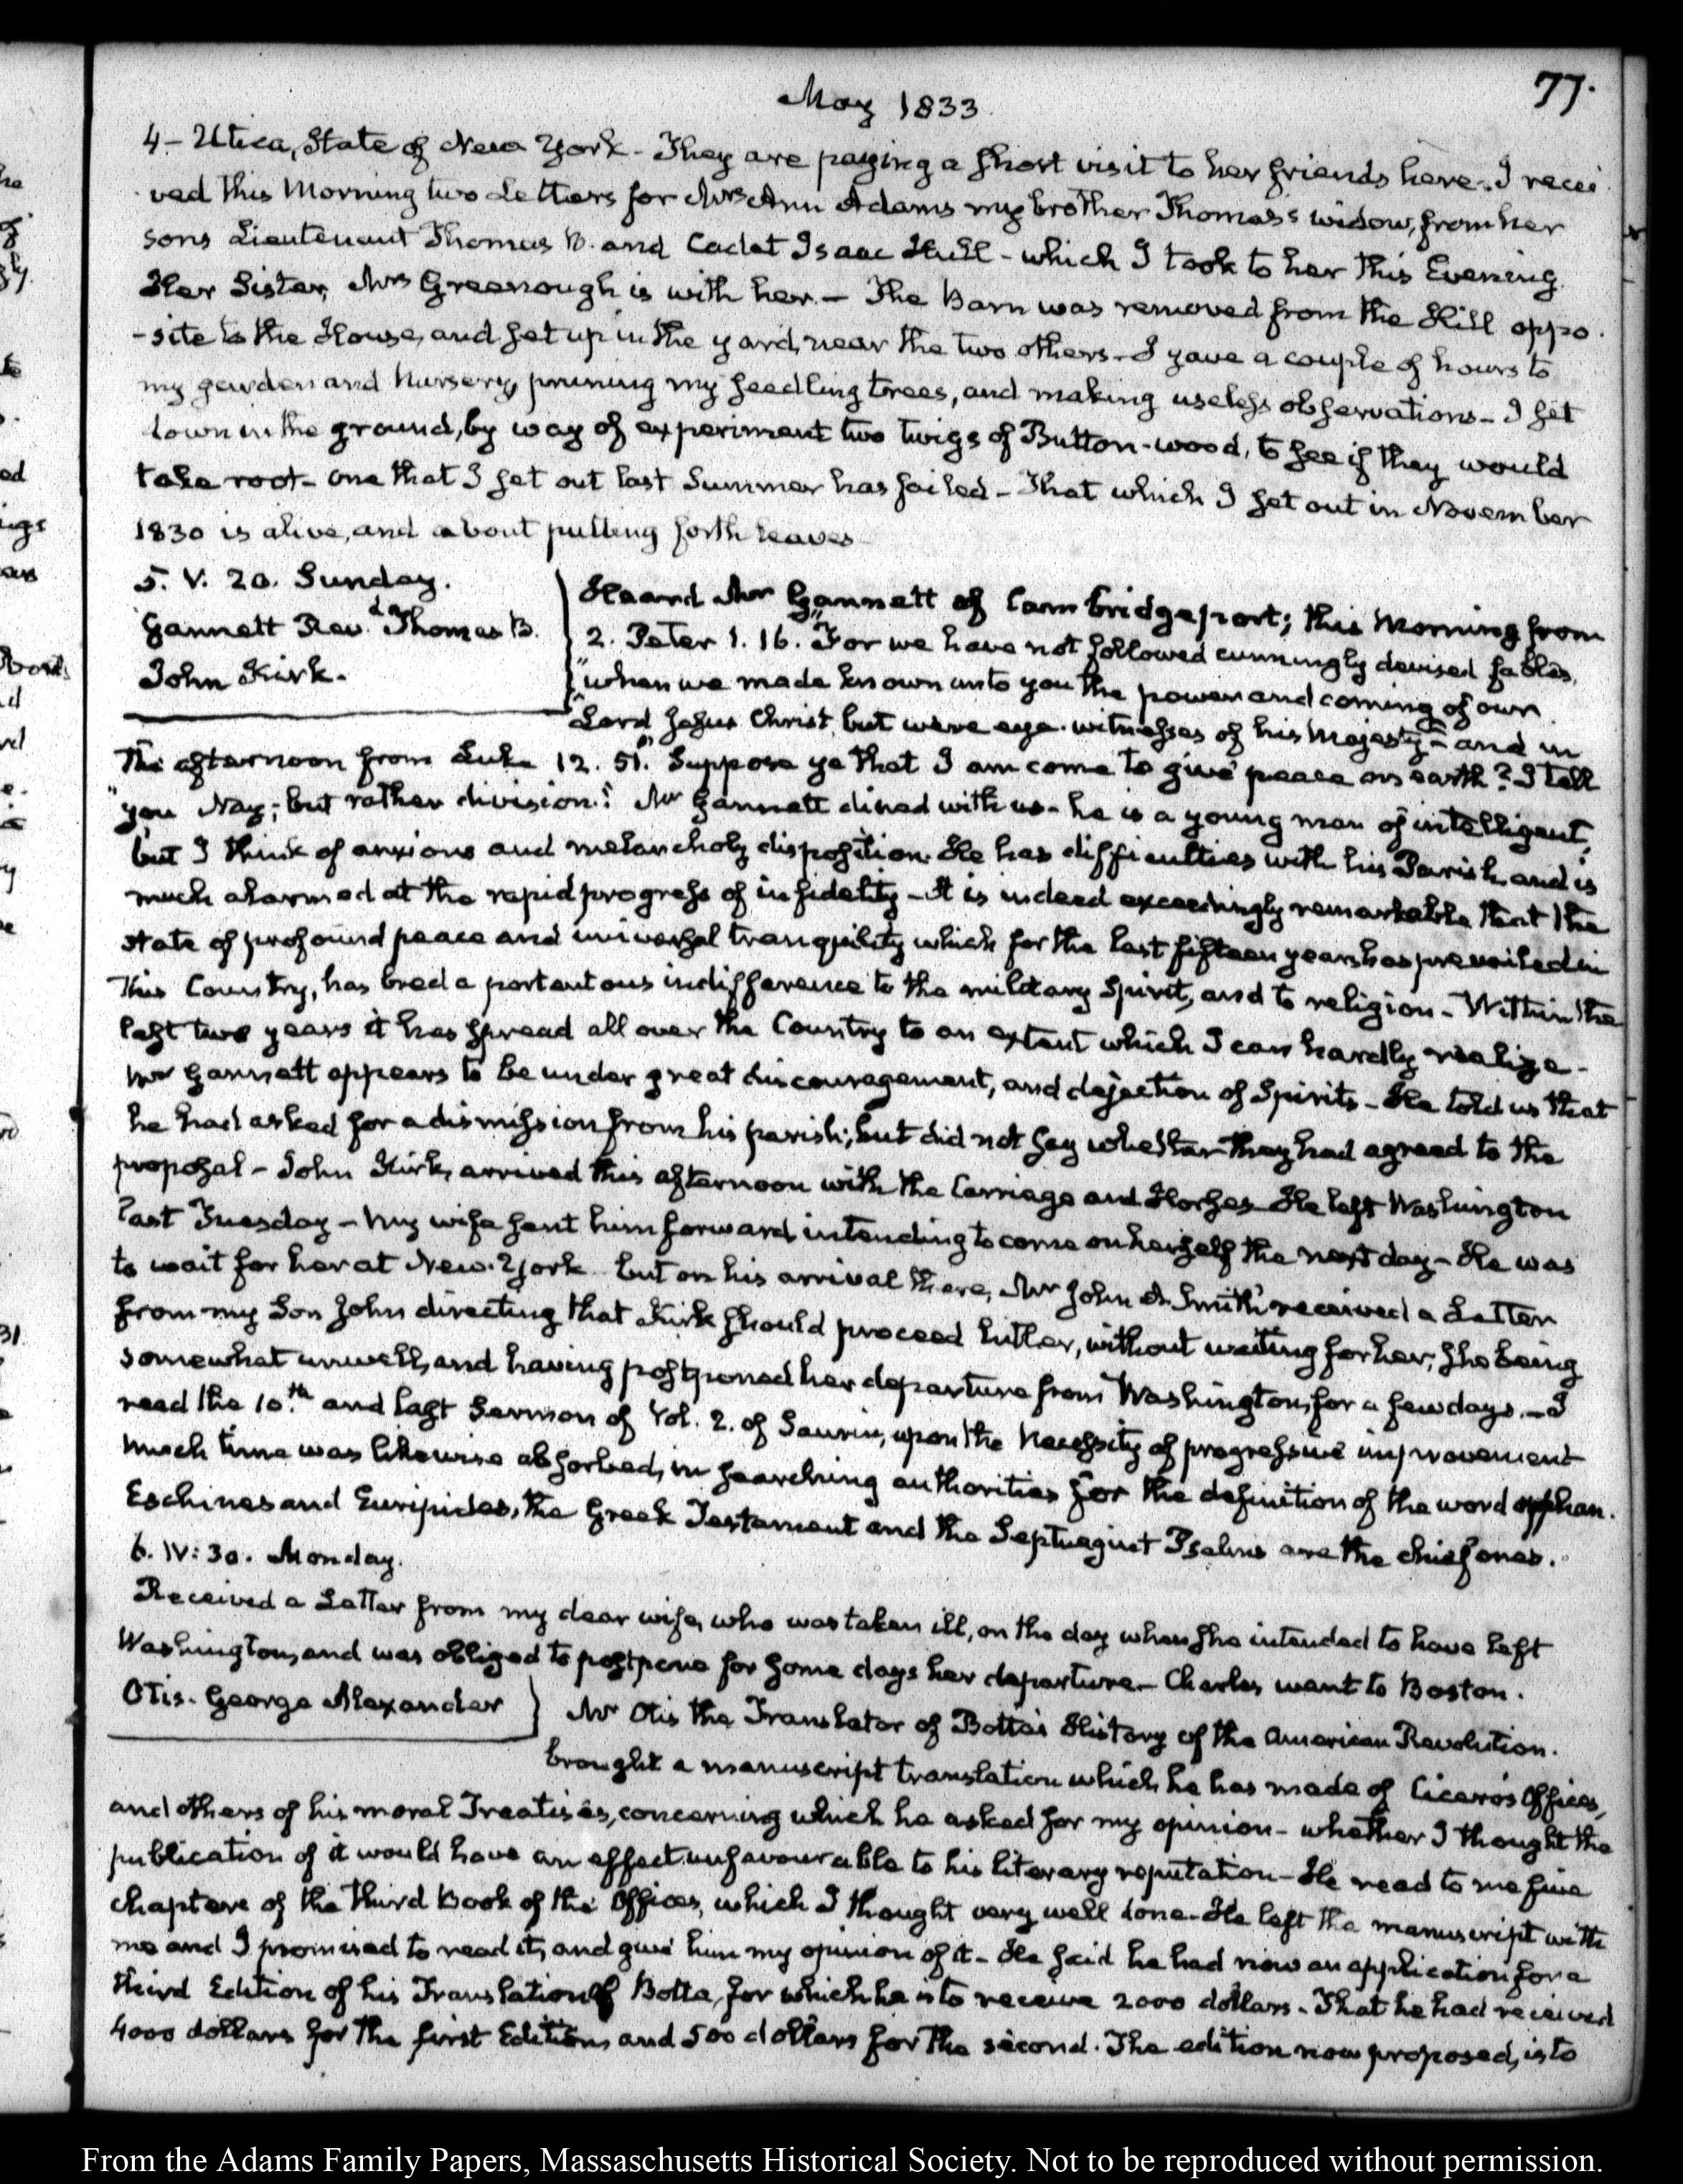 May 1833
77.
4 - Utica, State of New York - They are paying a short visit to her friends here. I recei
ved this Morning two Letters for Mrs Ann Adams my brother Thomas's widow, from her
sons Lieutenant Thomas B. and Cadet Isaac Hull - which I took to her this Evening.
Her Sister, Mrs Greenough is with her. - The Barn was removed from the Hill oppo
-site to the House, and set up in the yard, near the two others - I gave a couple of hours to
my garden and Nursery, pruning my seedling trees, and making useless observations - I set
down in the ground, by way of experiment two twigs of Button-wood, to see if they would
take root - one that I set out last Summer has failed - That which I set out in November
1830 is alive, and about putting forth leaves
5. V. 20. Sunday.
Gannett Rev.d Thomas B.
John Kirk.
Heard Mr Gannett of Cambridgeport; this Morning from
2. Peter 1. 16. "For we have not followed cunningly devised fables,
"when we made known unto you the power and coming of our
"Lord Jesus Christ, but were eye-witnesses of his Majesty" - and in
the afternoon from Luke 12. 51. "Suppose ye that I am come to give peace on earth? I tell
"you Nay; but rather division." Mr Gannett dined with us - he is a young man of intelligent,
but I think of anxious and melancholy disposition. He has difficulties with his Parish, and is
much alarmed at the rapid progress of infidelity - It is indeed exceedingly remarkable that the
state of profound peace and universal tranquility which for the last fifteen years has prevailed in
this Country, has bred a portentous indifference to the military Spirit, and to religion - Within the
last two years it has spread all over the Country to an extent which I can hardly realize -
Mr Gannett appears to be under great discouragement, and dejection of Spirits - He told us that
he had asked for a dismission from his parish; but did not say whether they had agreed to the
proposal - John Kirk, arrived this afternoon with the Carriage and Horses - He left Washington
last Tuesday - My wife sent him forward, intending to come on herself the next day - He was
to wait for her at New-York but on his arrival there, Mr John A. Smith received a Letter
from my Son John directing that Kirk should proceed hither, without waiting for her; she being
somewhat unwell, and having postponed her departure from Washington, for a few days. - I
read the 10.th and last Sermon of Vol. 2. of Saurin, upon the Necessity of progressive improvement
Much time was likewise absorbed, in searching authorities for the definition of the word orphan.
Eschines and Euripides, the Greek Testament and the Septuagint Psalms are the chief ones.
6. IV: 30. Monday.
Received a Letter from my dear wife, who was taken ill, on the day when she intended to have left
Washington, and was obliged to postpone for some days her departure - Charles went to Boston.
Otis. George Alexander
Mr Otis the Translator of Botta's History of the American Revolution.
brought a manuscript translation which he has made of Cicero's Offices,
and others of his moral Treatises, concerning which he asked for my opinion - whether I thought the
publication of it would have an effect unfavourable to his literary reputation - He read to me five
chapters of the third Book of the Offices, which I thought very well done - He left the manuscript with
me and I promised to read it, and give him my opinion of it - He said he had now an application for a
third Edition of his Translation of Botta, for which he is to receive 2000 dollars - That he had received
4000 dollars for the first Edition, and 500 dollars for the second. The edition now proposed, is to
From the Adams Family Papers, Massaschusetts Historical Society. Not to be reproduced without permission.